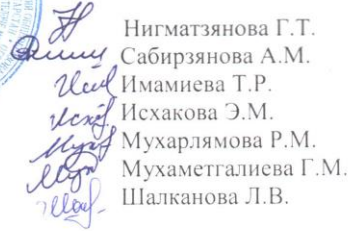 Нигматзянова Г.Т.
Сабирзянова А.М.
Имамиева Т.Р.
Исхакова Э.М.
Мухарлямова Р.М.
Мухаметгалиева Г.М.
Шалканова Л.В.